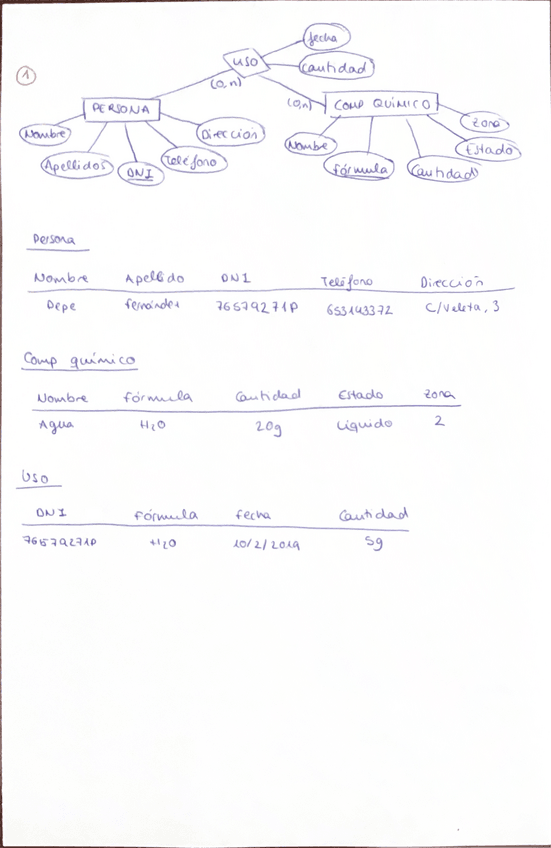 fecha
USO
Cantidad
1
(0,n)
(0,n)
PERSONA
COMP QUÍMICO
Zona
Nombre
Dirección
Nombre
Estado
Apellidos
DNI
Teléfono
Fórmula
Cantidad
Persona
Nombre Apellido DNI Teléfono Dirección
Pepe fernández 76579271P 653143372 C/Veleta, 3
Comp químico
Nombre fórmula Cantidad Estado Zona
Agua H2O 20g Líquido 2
USO
DNI Fórmula fecha Cantidad
76579271P H2O 10/2/2019 5g